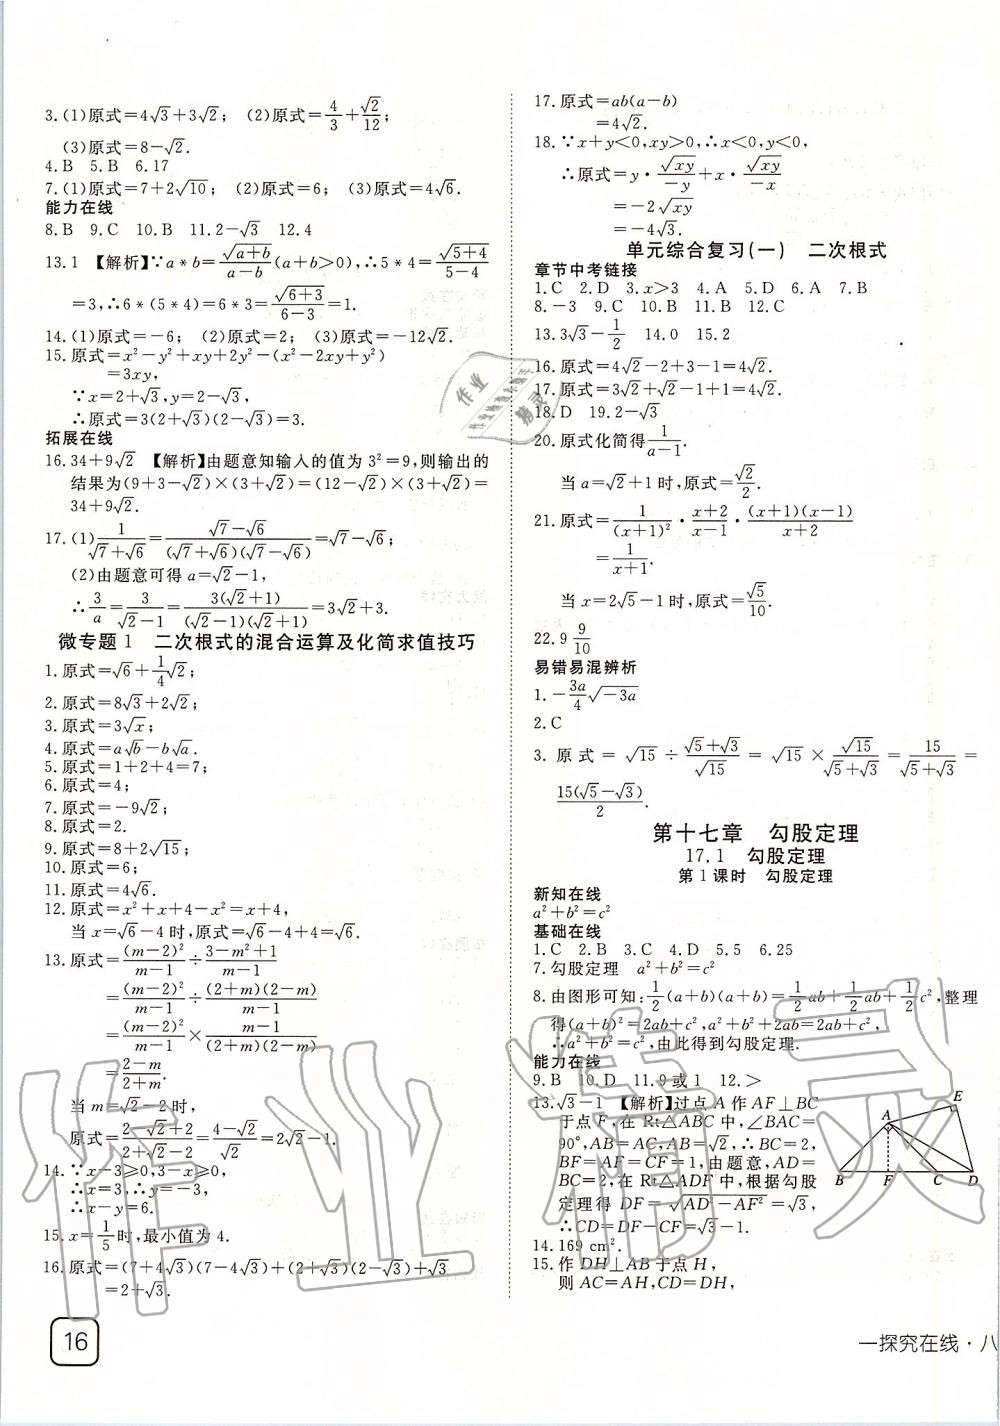 3.(1)原式=4√3+3√2; (2)原式=4/3+√2/12;
(3)原式=8-√2.
4.B 5.B 6.17
7.(1)原式=7+2√10; (2)原式=6; (3)原式=4√6.
能力在线
8.B 9.C 10.B 11.2-√3 12.4
13.1 【解析】∵a*b=√(a+b)/(a-b)(a+b>0),∴5*4=√(5+4)/(5-4)
=3,∴6*(5*4)=6*3=√(6+3)/(6-3)=1.
14.(1)原式=-6; (2)原式=2; (3)原式=-12√2.
15.原式=x²-y²+xy+2y²-(x²-2xy+y²)
=3xy,
∵x=2+√3,y=2-√3,
∴原式=3(2+√3)(2-√3)=3.
拓展在线
16.34+9√2 【解析】由题意知输入的值为3²=9,则输出的
结果为(9+3-√2)×(3+√2)=(12-√2)×(3+√2)=
34+9√2.
17.(1)1/(√7+√6)=(√7-√6)/((√7+√6)(√7-√6))=√7-√6;
(2)由题意可得a=√2-1,
∴3/a=3/(√2-1)=3(√2+1)/((√2-1)(√2+1))=3√2+3.
微专题1 二次根式的混合运算及化简求值技巧
1.原式=√6+1/4√2;
2.原式=8√3+2√2;
3.原式=3√x;
4.原式=a√b-b√a.
5.原式=1+2+4=7;
6.原式=4;
7.原式=-9√2;
8.原式=2.
9.原式=8+2√15;
10.原式=6;
11.原式=4√6.
12.原式=x²+x+4-x²=x+4,
当x=√6-4时,原式=√6-4+4=√6.
13.原式=(m-2)²/(m-1)÷(3-m²+1)/(m-1)
=(m-2)²/(m-1)÷(2+m)(2-m)/(m-1)
=(m-2)²/(m-1)×(m-1)/((2+m)(2-m))
=(2-m)/(2+m).
当m=√2-2时,
原式=(2-√2+2)/(2+√2-2)=(4-√2)/√2=2√2-1.
14.∵x-3≥0,3-x≥0,
∴x=3,∴y=-3,
∴x-y=6.
15.x=1/5时,最小值为4.
16.原式=(7+4√3)(7-4√3)+(2+√3)(2-√3)+√3
=1+1+√3
=2+√3.
16
17.原式=ab(a-b)
=4√2.
18.∵x+y<0,xy>0,∴x<0,y<0,
∴原式=y·√(xy)/(-y)+x·√(xy)/(-x)
=-2√(xy)
=-4√3.
单元综合复习(一) 二次根式
章节中考链接
1.C 2.D 3.x>3 4.A 5.D 6.A 7.B
8.-3 9.C 10.B 11.B 12.C
13.3√3-1/2 14.0 15.2
16.原式=4√2-2+3-1=4√2.
17.原式=3√2+√2-1+1=4√2.
18.D 19.2-√3
20.原式化简得1/(a-1).
当a=√2+1时,原式=√2/2.
21.原式=1/(x+1)²·(x+2)/(x-1)·(x+1)(x-1)/(x+2)
=1/(x+1).
当x=2√5-1时,原式=√5/10.
22.9 9/10
易错易混辨析
1.-3a/4√(-3a)
2.C
3.原式=√15÷(√5+√3)/√15=√15×√15/(√5+√3)=15/(√5+√3)=
15(√5-√3)/2.
第十七章 勾股定理
17.1 勾股定理
第1课时 勾股定理
新知在线
a²+b²=c²
基础在线
1.C 2.B 3.C 4.D 5.5 6.25
7.勾股定理 a²+b²=c²
8.由图形可知:1/2(a+b)(a+b)=1/2ab+1/2ab+1/2c²,整理
得(a+b)²=2ab+c²,a²+b²+2ab=2ab+c²,
∴a²+b²=c²,由此得到勾股定理.
能力在线
9.B 10.D 11.9或1 12.>
13.√3-1 【解析】过点A作AF⊥BC
于点F,在Rt△ABC中,∠BAC=
90°,AB=AC,AB=√2,∴BC=2,
BF=AF=CF=1,由题意,AD=
BC=2,在Rt△ADF中,根据勾股
定理得DF=√(AD²-AF²)=√3,
∴CD=DF-CF=√3-1.
A
E
B
F
C
D
14.169 cm².
15.作DH⊥AB于点H,
则AC=AH,CD=DH,
一探究在线·八
作业精灵